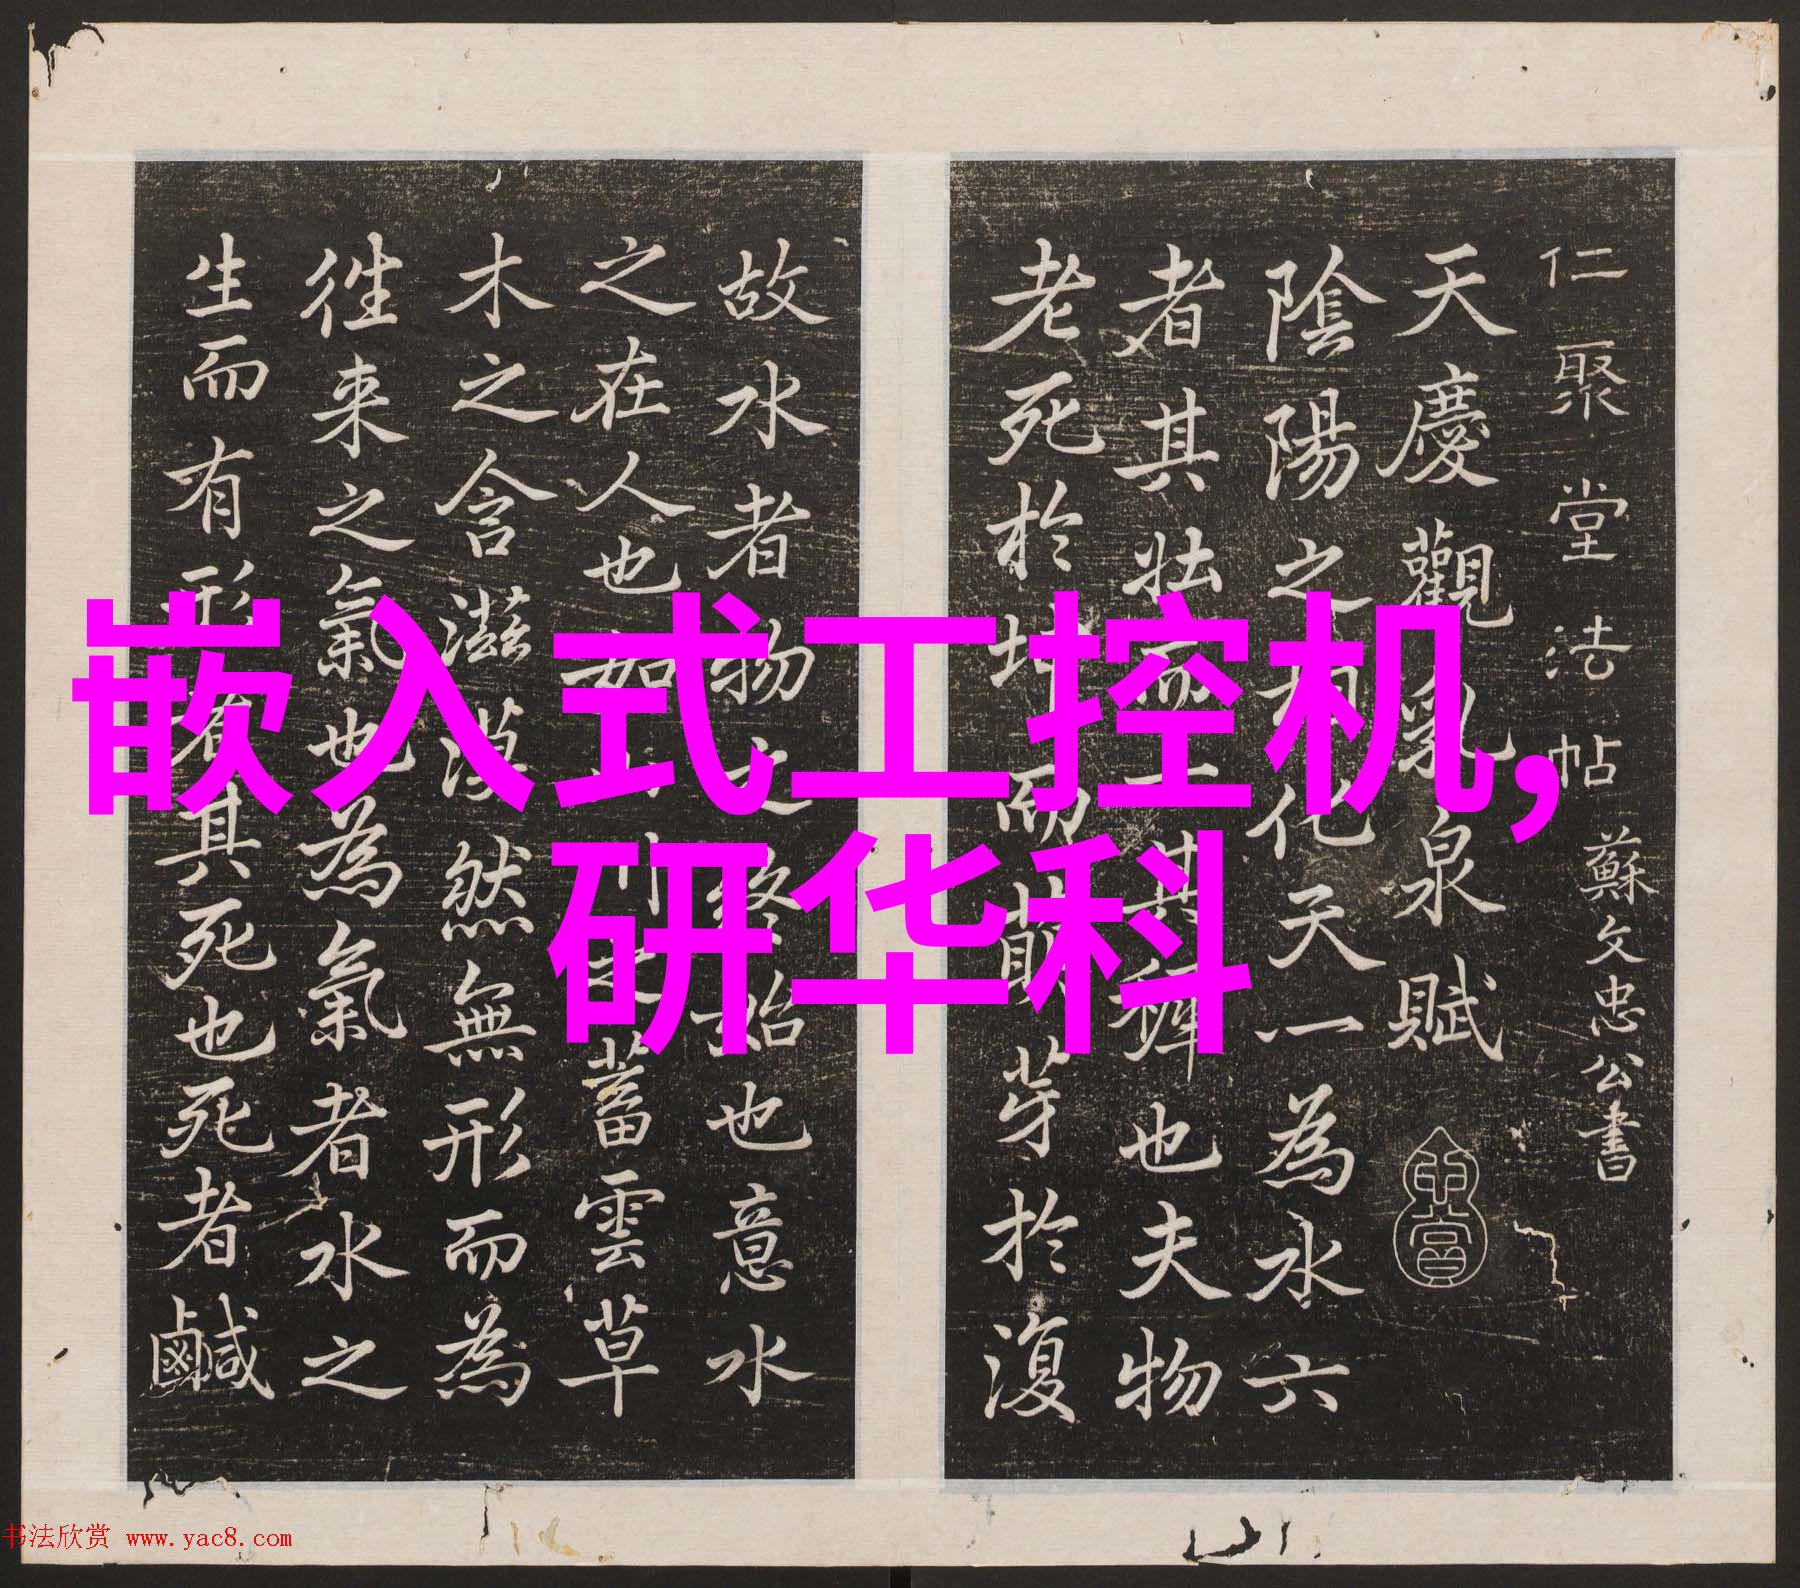 嵌入式工控机,
研华科
仁聚堂法帖 蘇文忠公書
天慶觀乳泉賦
陰陽之相化天一為水六
者其壯而一其稚也夫物
老死於坤而萌芽於復
故水者物之終始也意水
之在人也如山川之蓄雲草
木之含滋漠然無形而為
往来之氣也為氣者水之
生而有形者其死也死者鹹
书法欣赏 www.yac8.com